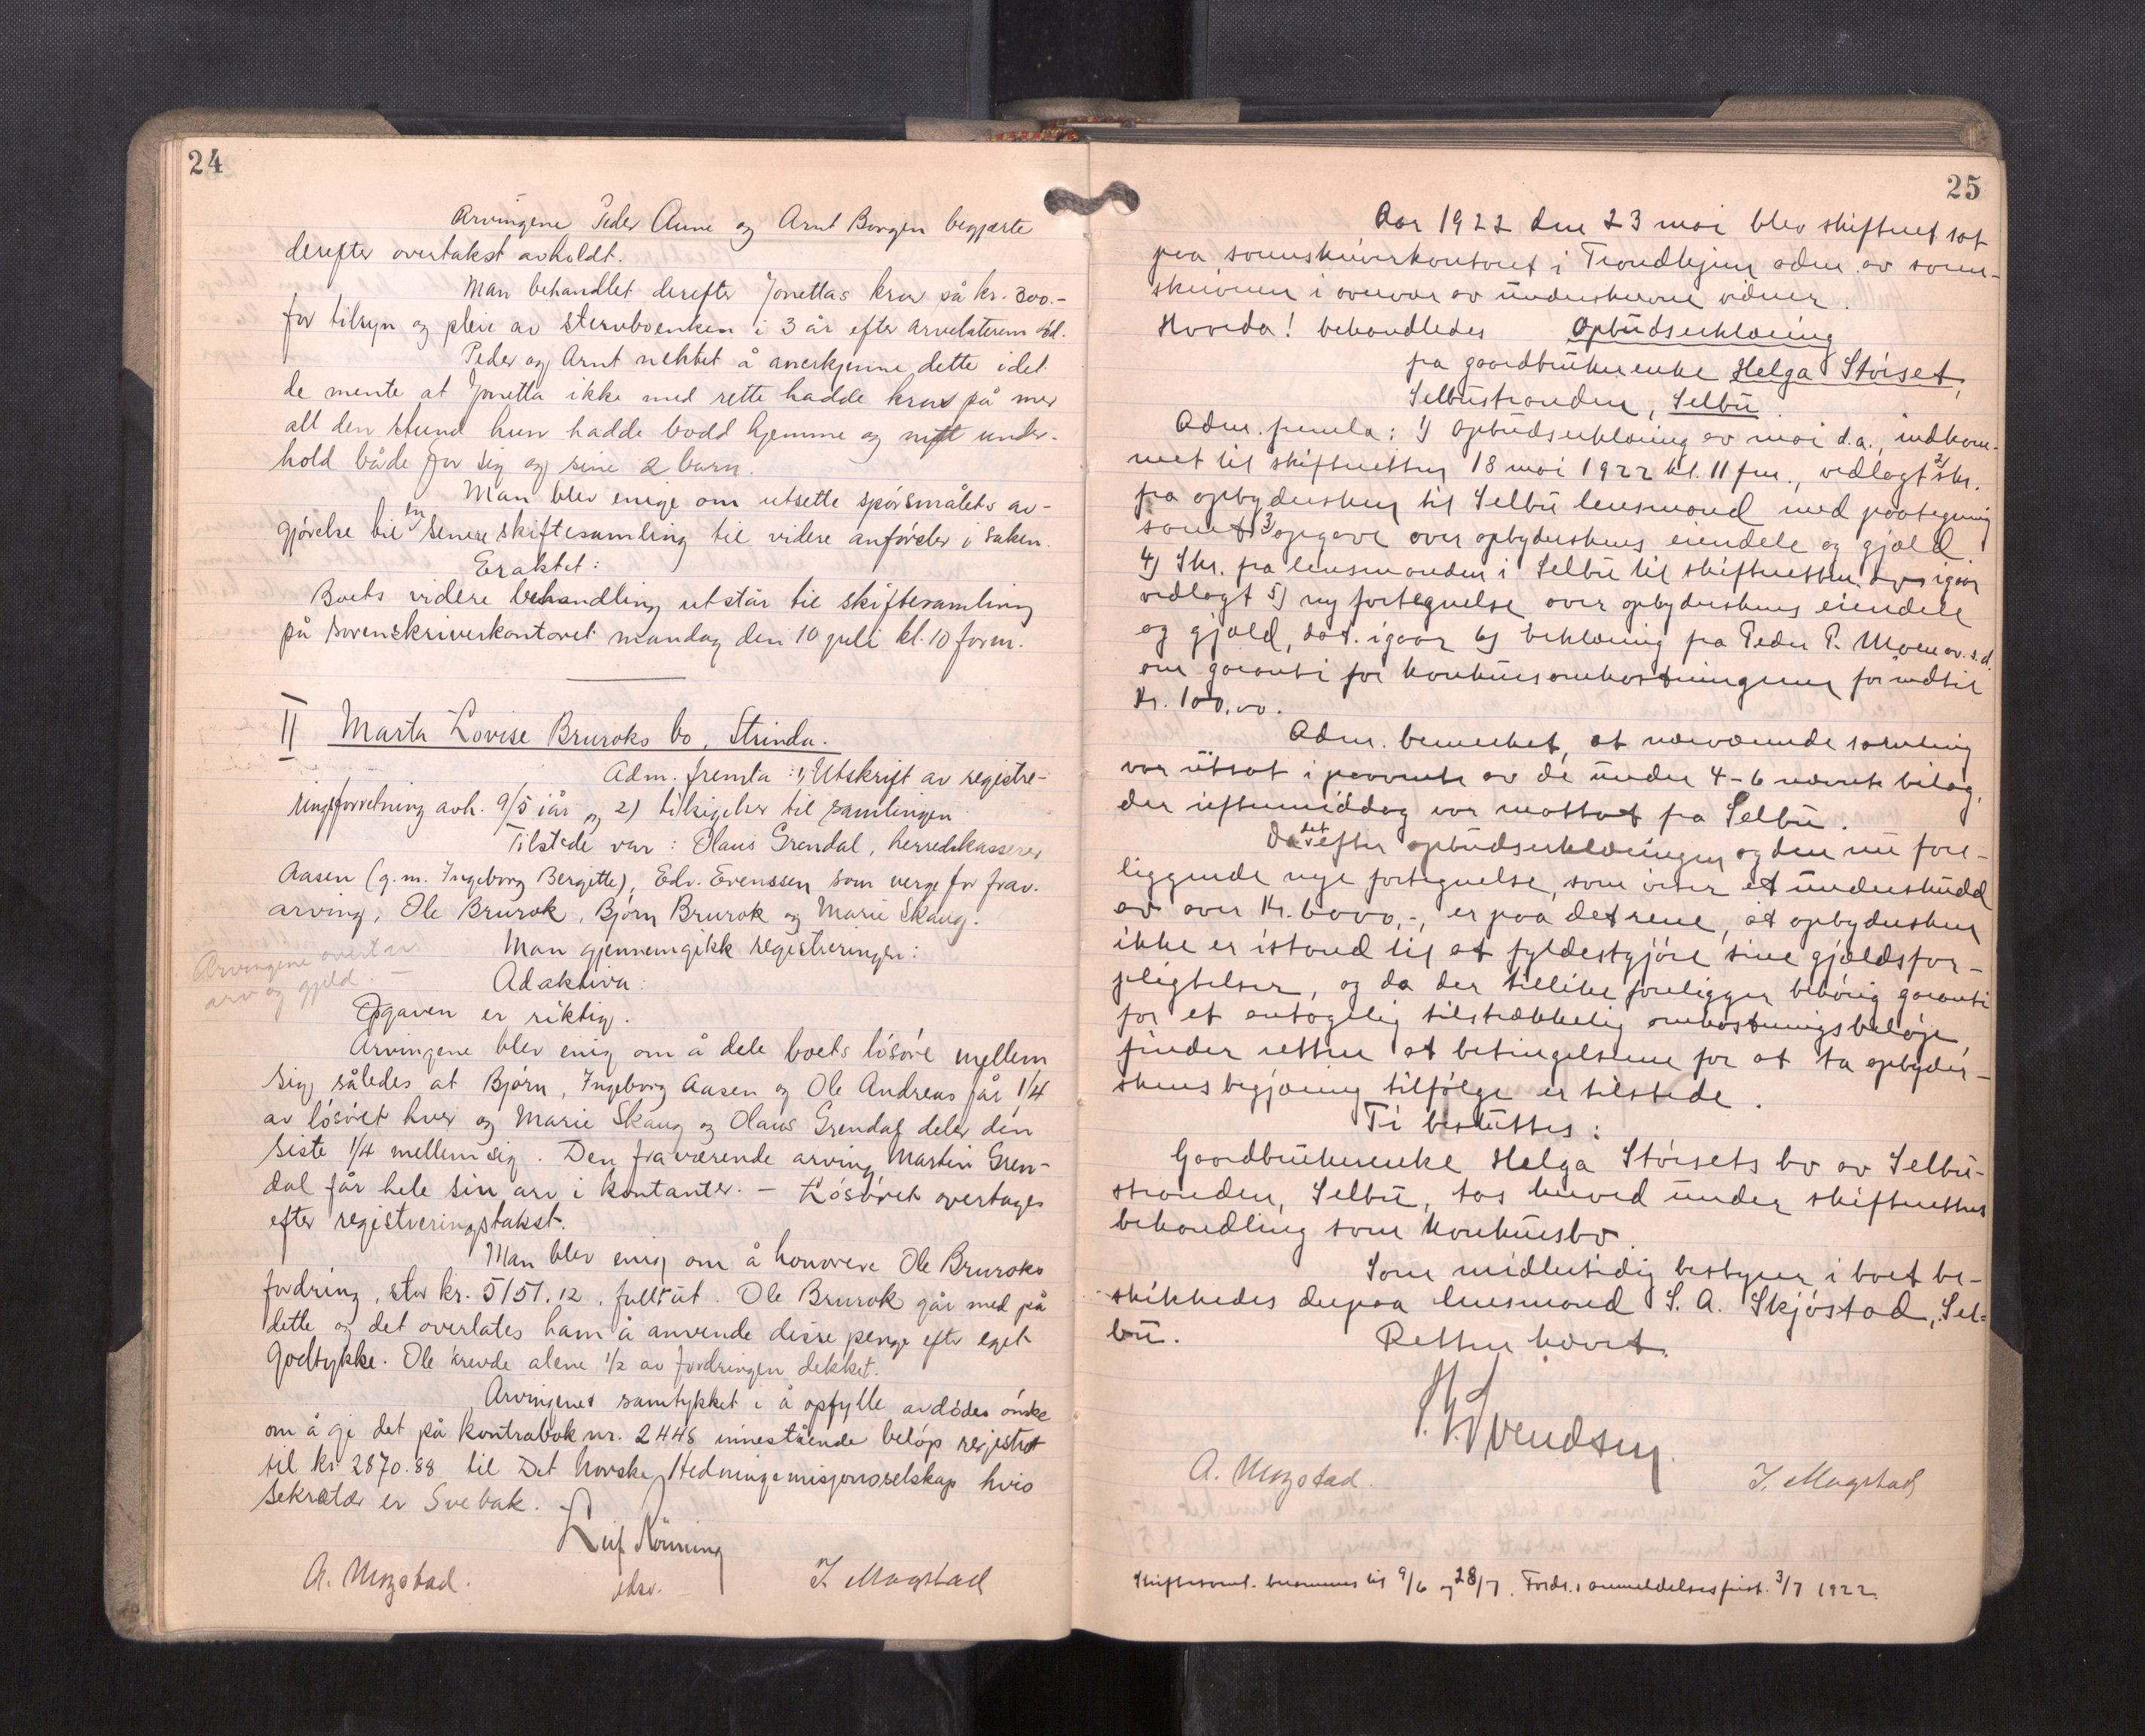 24
Arvingene Peder Aune og Arnt Borgen begjærte
derefter overtakst avholdt.
Man behandlet derefter Jonettas krav på kr. 300.-
for tilsyn og pleie av stervboenken i 3 år efter arvelaterens død.
Peder og Arnt nektet å anerkjenne dette idet
de mente at Jonetta ikke med rette hadde krav på mer
all den stund hun hadde bodd hjemme og nytt under-
hold både for sig og sine 2 barn.
Man blev enige om utsette spörsmålets av-
gjörelse til en senere skiftesamling til videre anförsler i saken.
Eraktet:
Boets videre behandling utstår til skiftesamling
på sorenskriverkontoret mandag den 10 juli kl. 10 form.
II Marta Lovise Bruroks bo, Strinda.
Adm. fremla: 1, Utskrift av registre-
ringsforretning avh. 9/5 iår og 2) tilsigelser til samlingen
Tilstede var: Olaus Grendal, herredskasserer
Aasen (g.m. Ingeborg Bergitte), Edv. Evenssen som verge for frav.
arving, Ole Brurok, Björn Brurok og Marie Skaug.
Man gjennemgikk registreringen:
Arvingene overtar
arv og gjeld. -
Ad aktiva:
Opgaven er riktig.
Arvingene blev enig om å dele boets lösöre mellem
sig, således at Björn, Ingeborg Aasen og Ole Andreas får 1/4
av lösöret hver og Marie Skaug og Olaus Grendal deler den
siste 1/4 mellem sig. Den fraværende arving Martin Gren-
dal får hele sin arv i kontanter. - Lösöret overtages
efter registreringstakst.
Man blev enig om å honorere Ole Bruroks
fordring, stor kr. 5151.12, fullt ut. Ole Brurok går med på
dette og det overlates ham å anvende disse penge efter eget
godtykke. Ole krevde alene 1/2 av fordringen dekket.
Arvingenes samtykket i å opfylle avdödes önske
om å gi det på kontrabok nr. 2448 innestående belöp registret
til kr. 2870.88 til Det Norske Hedningemisjonsselskap hvis
sekretær er Svebak.
Leif Rönning
A. Mogstad.
J. Mogstad
25
Aar 1922 den 23 mai blev skifteret sat
paa sorenskriverkontoret i Trondhjem adm. av soren-
skriveren i overvær av underskrevne vidner.
Hvorda! behandledes Opbudserklæring
fra gaardbrukerenke Helga Stöiset,
Selbustranden, Selbu.
Adm. fremla: 1) Opbudserklæring av mai d.a., indkom-
met til skifteretten 18 mai 1922 kl. 11 fm., vedlagt 2) skr.
fra opbydersken til Selbu lensmand med paategning
samt 3) opgave over opbyderskens eiendele og gjæld.
4) Skr. fra lensmanden i Selbu til skifteretten av igaar
vedlagt 5) ny fortegnelse over opbyderskens eiendele
og gjæld, dat. igaar 6) Erklæring fra Peder P. Moen av s.d.
om garanti for konkursomkostningerne for indtil
Kr. 100,00.
Adm. bemerket, at nærværende samling
var utsat i paavente av de under 4-6 nævnte bilag,
der i eftermiddag var mottat fra Selbu.
Da det efter opbudserklæringen og den nu fore-
liggende nye fortegnelse, som viser et underskudd
av over Kr. 6000,-, er paa det rene, at opbydersken
ikke er istand til at fyldestgjöre sine gjældsfor-
pligtelser, og da der tillike foreligger behörig garanti
for et antagelig tilstrækkelig omkostningsbelöp,
finder retten at betingelserne for at ta opbyder-
skens begjæring tilfölge er tilstede.
Ti besluttes:
Gaardbrukerenke Helga Stöisets bo av Selbu-
stranden, Selbu, tas herved under skifterettens
behandling som konkursbo.
Som midlertidig bestyrer i boet be-
skikkedes derpaa lensmand S. A. Skjöstad, Sel-
bu.
Retten hævet.
Svendsen.
A. Mogstad.
J. Mogstad
Skiftesaml. berammes til 9/6 og 28/7. Fordr. anmeldelsesfrist 3/7 1922.